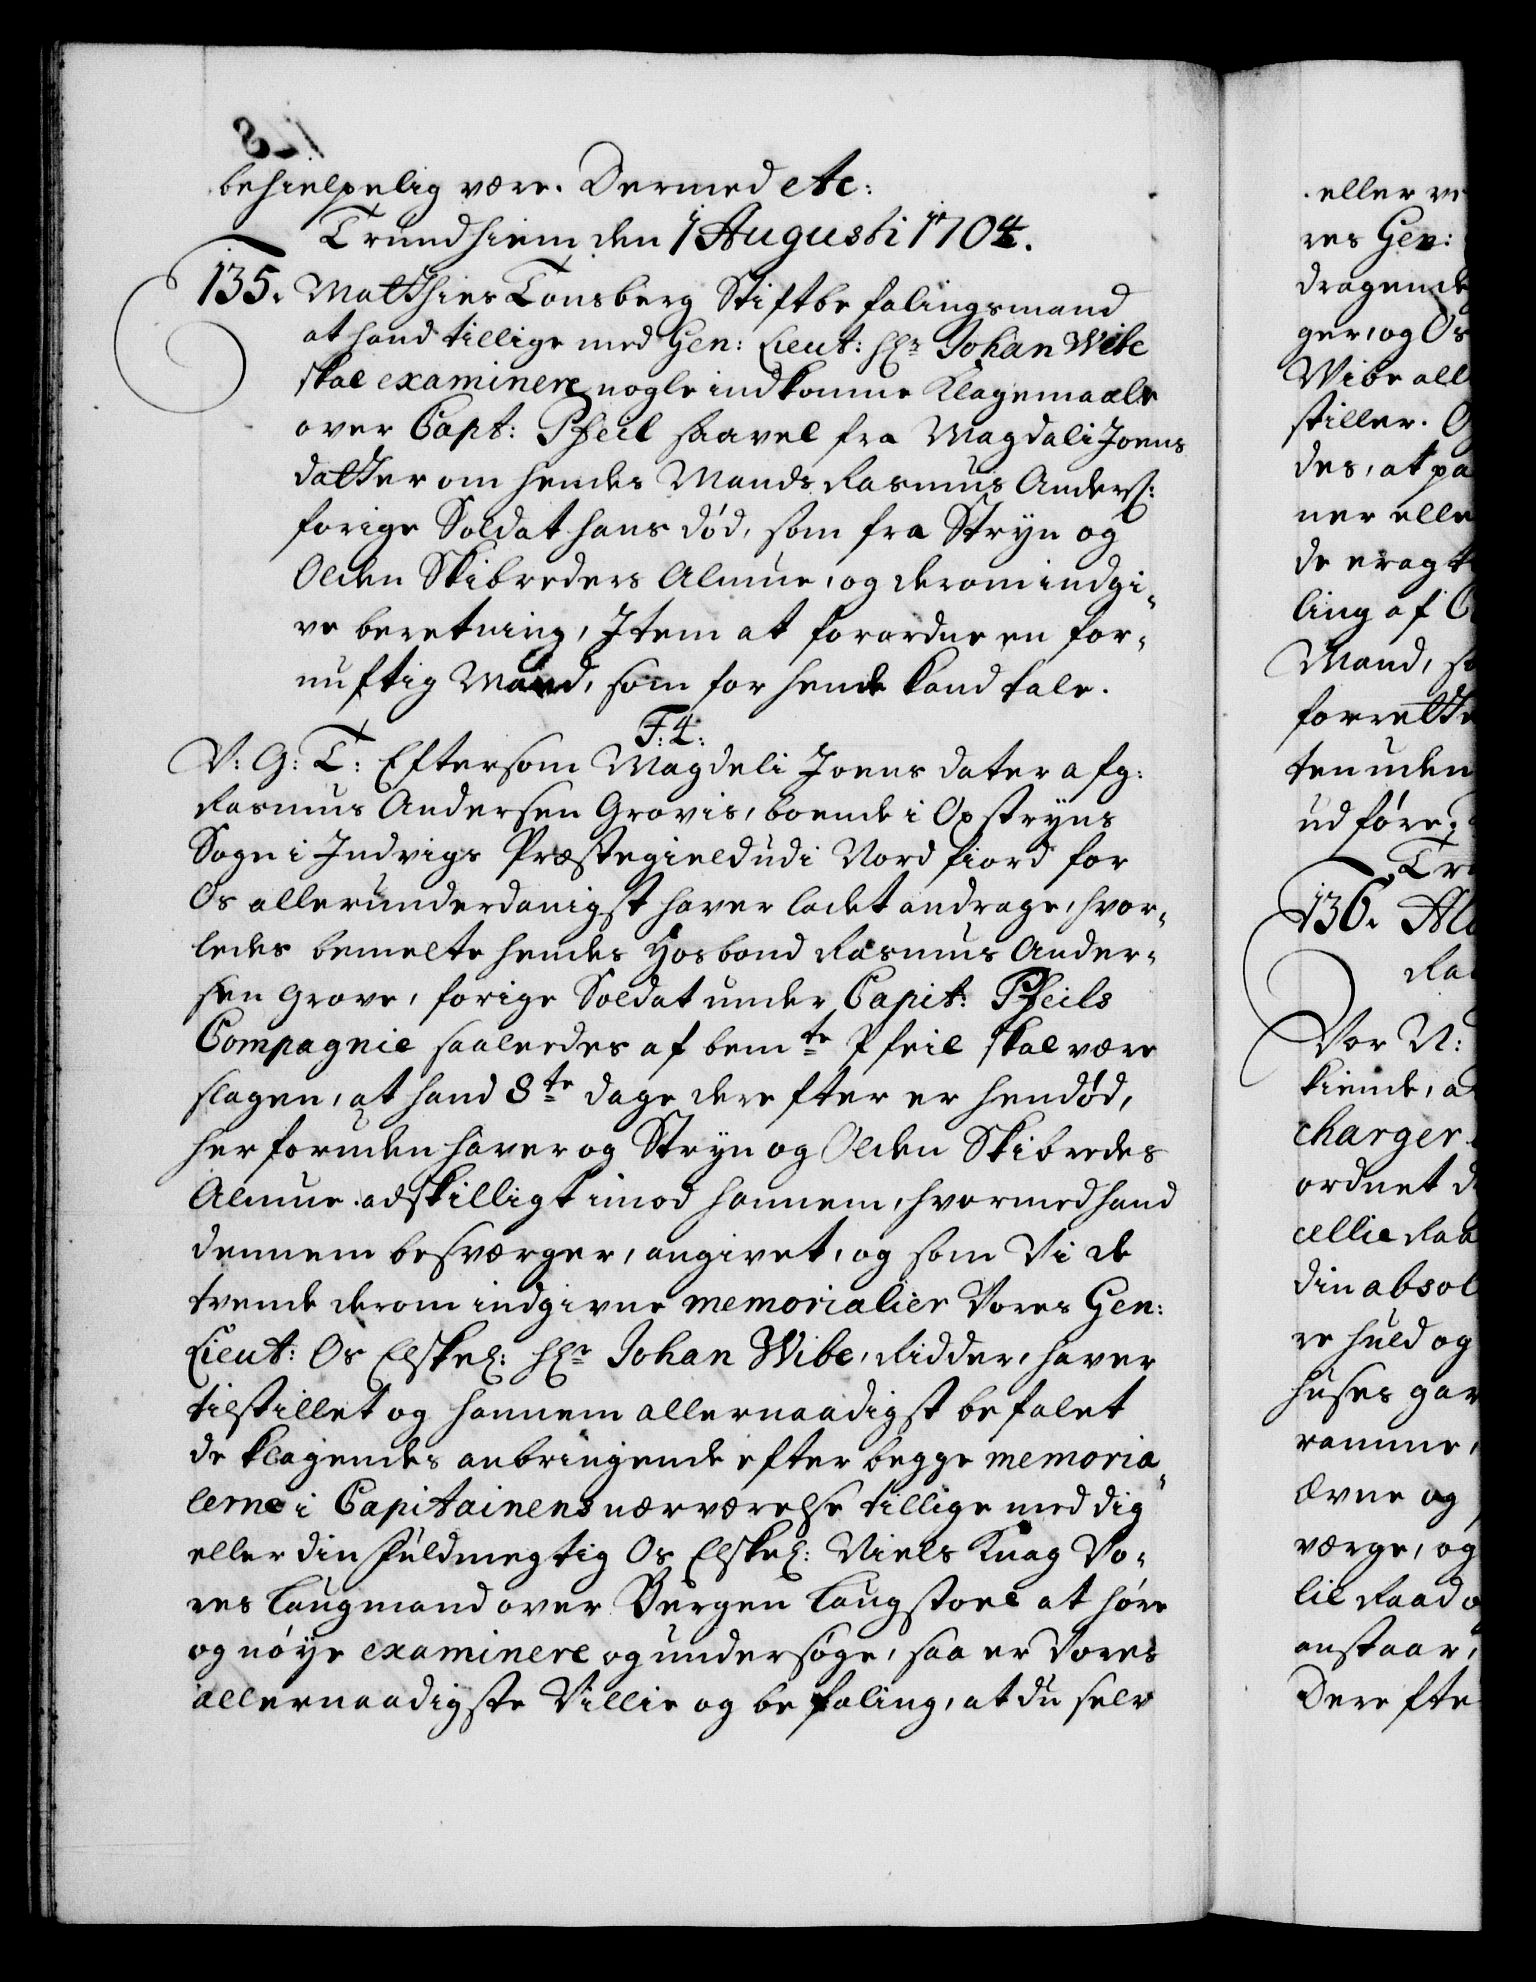 behielpelig være. Dermed etc:
Trundhiem den 1 Augusti 1704.
135. Matthies Tonsberg Stiftbefalingsmand
at hand tillige med Gen: Lieut: Hr. Johan Wibe
skal examinere nogle indkomne Klagemaale
over Capt: Pfeil saavel fra Magdali Joens
datter om hendes Mands Rasmus Anders:
forige Soldat hans død, som fra Stryn og
Olden Skibreders Almue, og derom indgi-
ve beretning, Item at forordne en for-
nuftig Mand, som for hende kand tale.
F. 4:
V: G: T: Eftersom Magdeli Joens dater afg:
Rasmus Andersen Grovis, boende i Opstryns
Sogn i Indvigs Præstegield udi Nordfiord for
Os allerunderdanigst haver ladet andrage, hvor-
ledes bemelte hendes Hosbond Rasmus Ander-
sen Grove, forige Soldat under Capit: Pfeils
Compagnie saaledes af bemte Pfeil skal være
slagen, at hand 8te dage derefter er hendød,
herforuden haver og Stryn og Olden Skibredes
Almue adskilligt imod hannem, hvormed hand
dennem besværger, angivet, og som Vi de
tvende derom indgivne memorialier Vores Gen:
Lieut: Os Elskel: Hr. Johan Wibe, Ridder, haver
tilstillet og hannem allernaadigst befalet
de klagendes anbringende efter begge memoria-
lerne i Capitainens nærværelse tillige med dig
eller din fuldmegtig Os Elskel: Niels Knag Vo-
res Laugmand over Bergen Laugstoel at høre
og nøye examinere og undersøge, saa er Vores
allernaadigste Villie og befaling, at du selv
eller ve
res Gen:
dragende
ger, og Os
Wibe all
stiller. O
des, at pa
ner elle
de eragt
ling af C
Mand, so
forrette
ten uden
udføre.
Tr
136. Al
Ra
Vor N:
kiende, a
charger
ordnet d
cellie Raa
din absol
re huld og
huses gav
ramme,
ævne og
værge, og
lie Raad o
anstaar,
Derefte